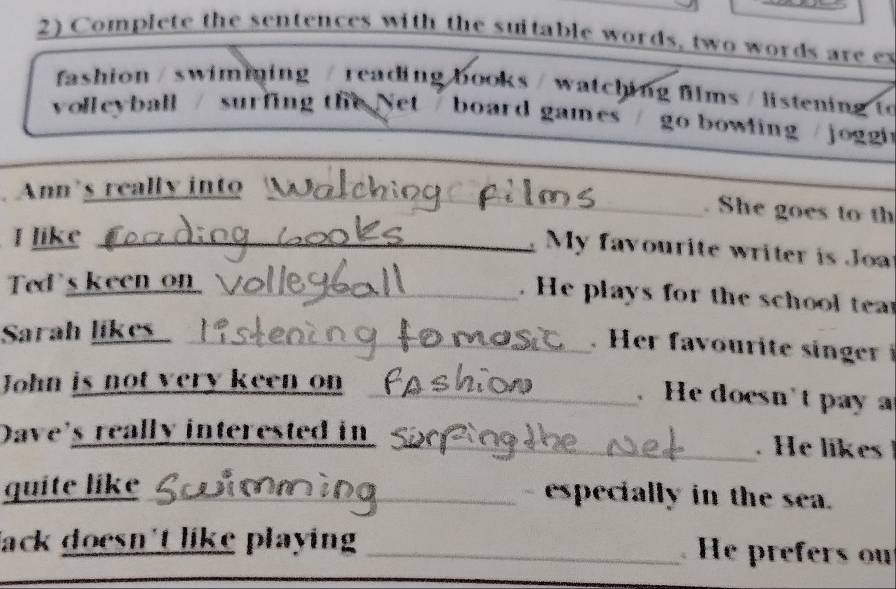 2) Complete the sentences with the suitable words, two words are ex
fashion / swimming / reading books / watching films / listening to
volleyball / surfing the Net / board games / go bowling / joggi
. Ann's really into Walching films . She goes to th
I like reading books . My favourite writer is Joa
Ted's keen on volleyball . He plays for the school tea
Sarah likes listening to mosic . Her favourite singer i
John is not very keen on fashion . He doesn't pay a
Dave's really interested in surfing the Net . He likes
quite like Swimming - especially in the sea.
ack doesn't like playing . He prefers ou